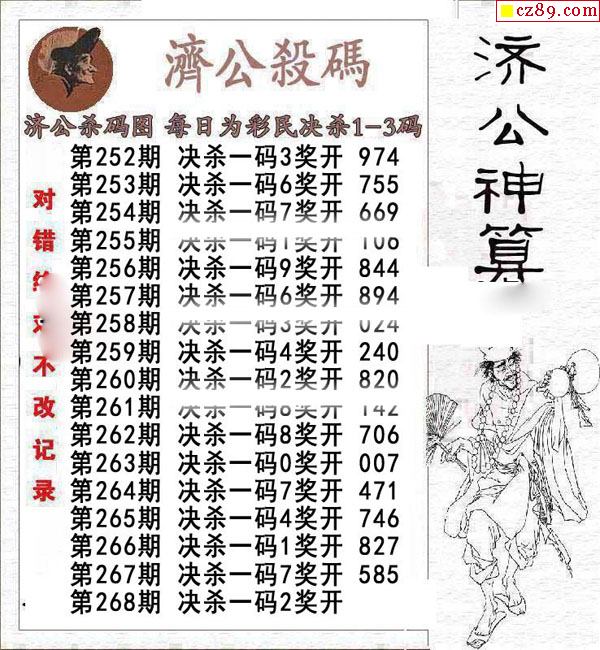 cz89.com
濟公殺碼
济公杀码图 每日为彩民决杀1-3码
第252期 决杀一码3奖开 974
第253期 决杀一码6奖开 755
第254期 决杀一码7奖开 669
第255期 决杀一码1奖开 108
第256期 决杀一码9奖开 844
第257期 决杀一码6奖开 894
第258期 决杀一码3奖开 024
第259期 决杀一码4奖开 240
第260期 决杀一码2奖开 820
第261期 决杀一码8奖开 142
第262期 决杀一码8奖开 706
第263期 决杀一码0奖开 007
第264期 决杀一码7奖开 471
第265期 决杀一码4奖开 746
第266期 决杀一码1奖开 827
第267期 决杀一码7奖开 585
第268期 决杀一码2奖开
对错不改记录
济公神算